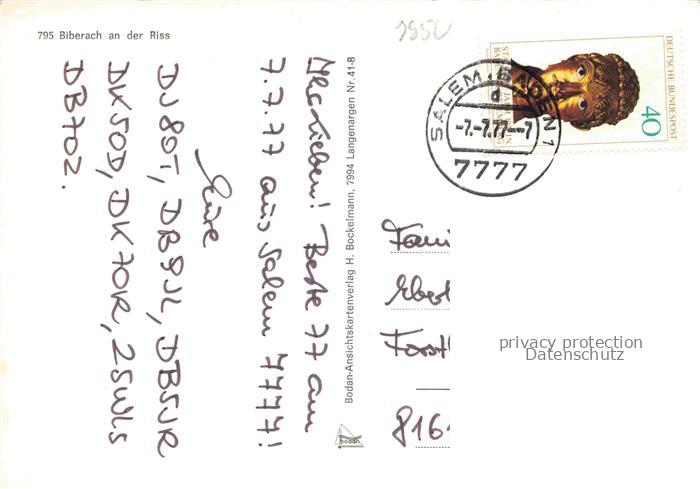 795 Biberach an der Riss
Ihr Lieben! Beste 77 am
7.7.77 aus Salem 7777!
Eure
DJ8OT, DB9JL, DB5JR
DK5OD, DK7OR,
DB7OZ.
Bodan-Ansichtskartenverlag H. Bockelmann, 7994 Langenargen Nr. 41-8
bodan
1950
SALEM, BADEN 1
a
-7.-7.77--7
7777
DEUTSCHE BUNDESPOST
40
Fami
Ebert
Forst
816
privacy protection
Datenschutz